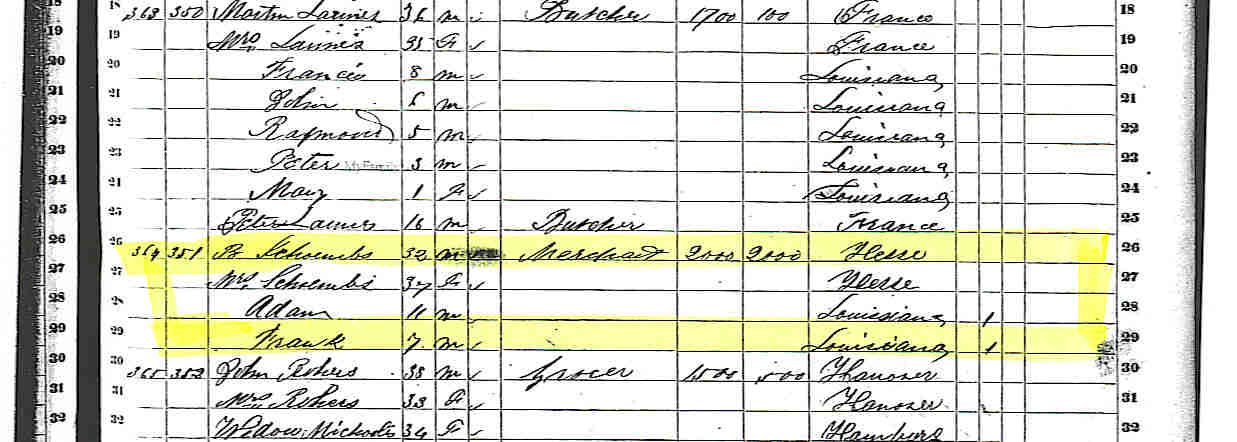 18 363 350 Martin Lannes 36 m Butcher 1700 100 France 18
19 19 Mrs Lannes 35 F France 19
20 20 Francis 8 m Louisiana 20
21 21 John 6 m Louisiana 21
22 22 Raymond 5 m Louisiana 22
23 23 Peter MyFamily 3 m Louisiana 23
24 21 Mary 1 F Louisiana 24
25 25 Peter Lannes 16 m Butcher France 25
26 26 364 351 B Schoembs 32 m Merchant 2000 2000 Hesse 26
27 27 Mrs Schoembs 37 F Hesse 27
28 28 Adam 11 m Louisiana 1 28
29 29 Frank 7 m Louisiana 1 29
30 30 365 352 John Rohers 38 m Grocer 1500 500 Hanover 30
31 31 Mrs Rohers 33 F Hanover 31
32 32 Widow 34 F Hamburg 32